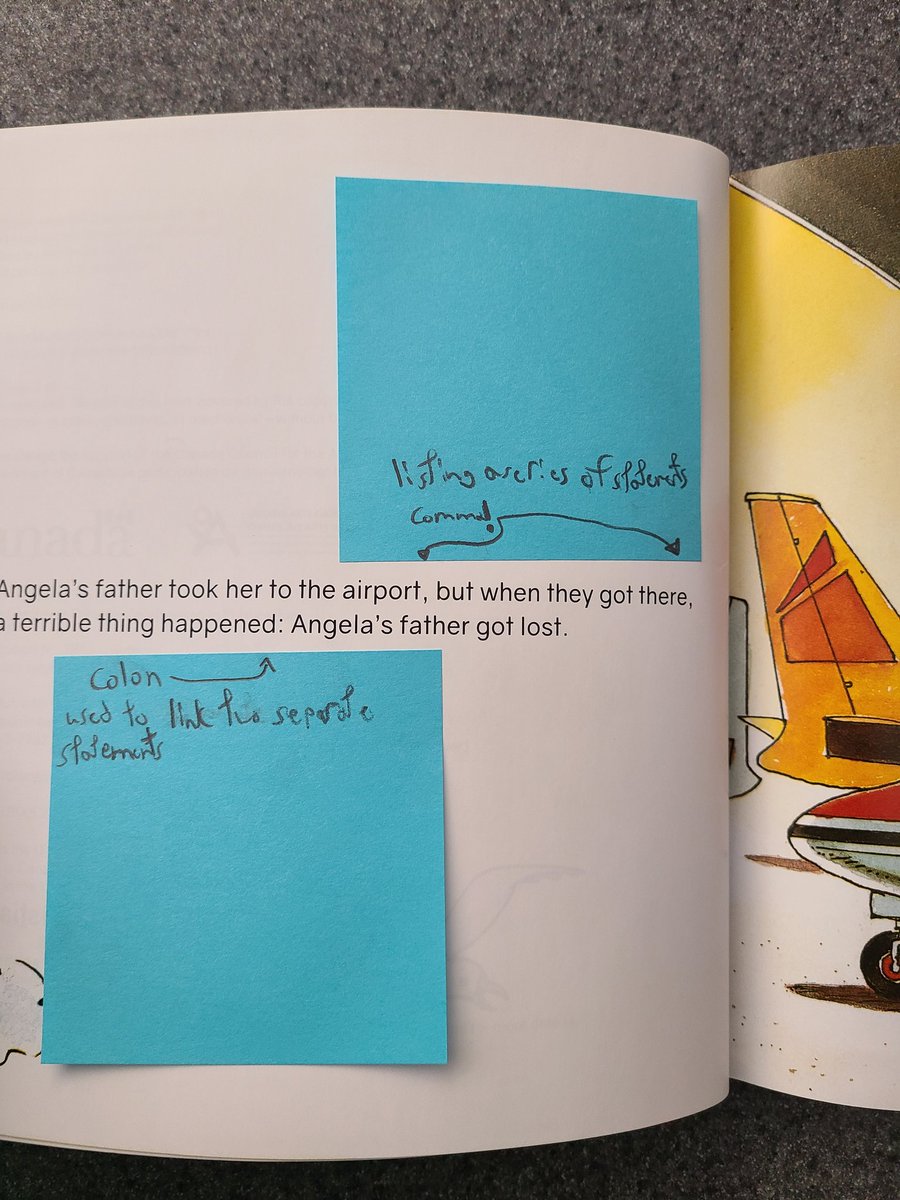 listing a series of statements
Comma
Angela's father took her to the airport, but when they got there,
a terrible thing happened: Angela's father got lost.
Colon
used to link two separate
statements